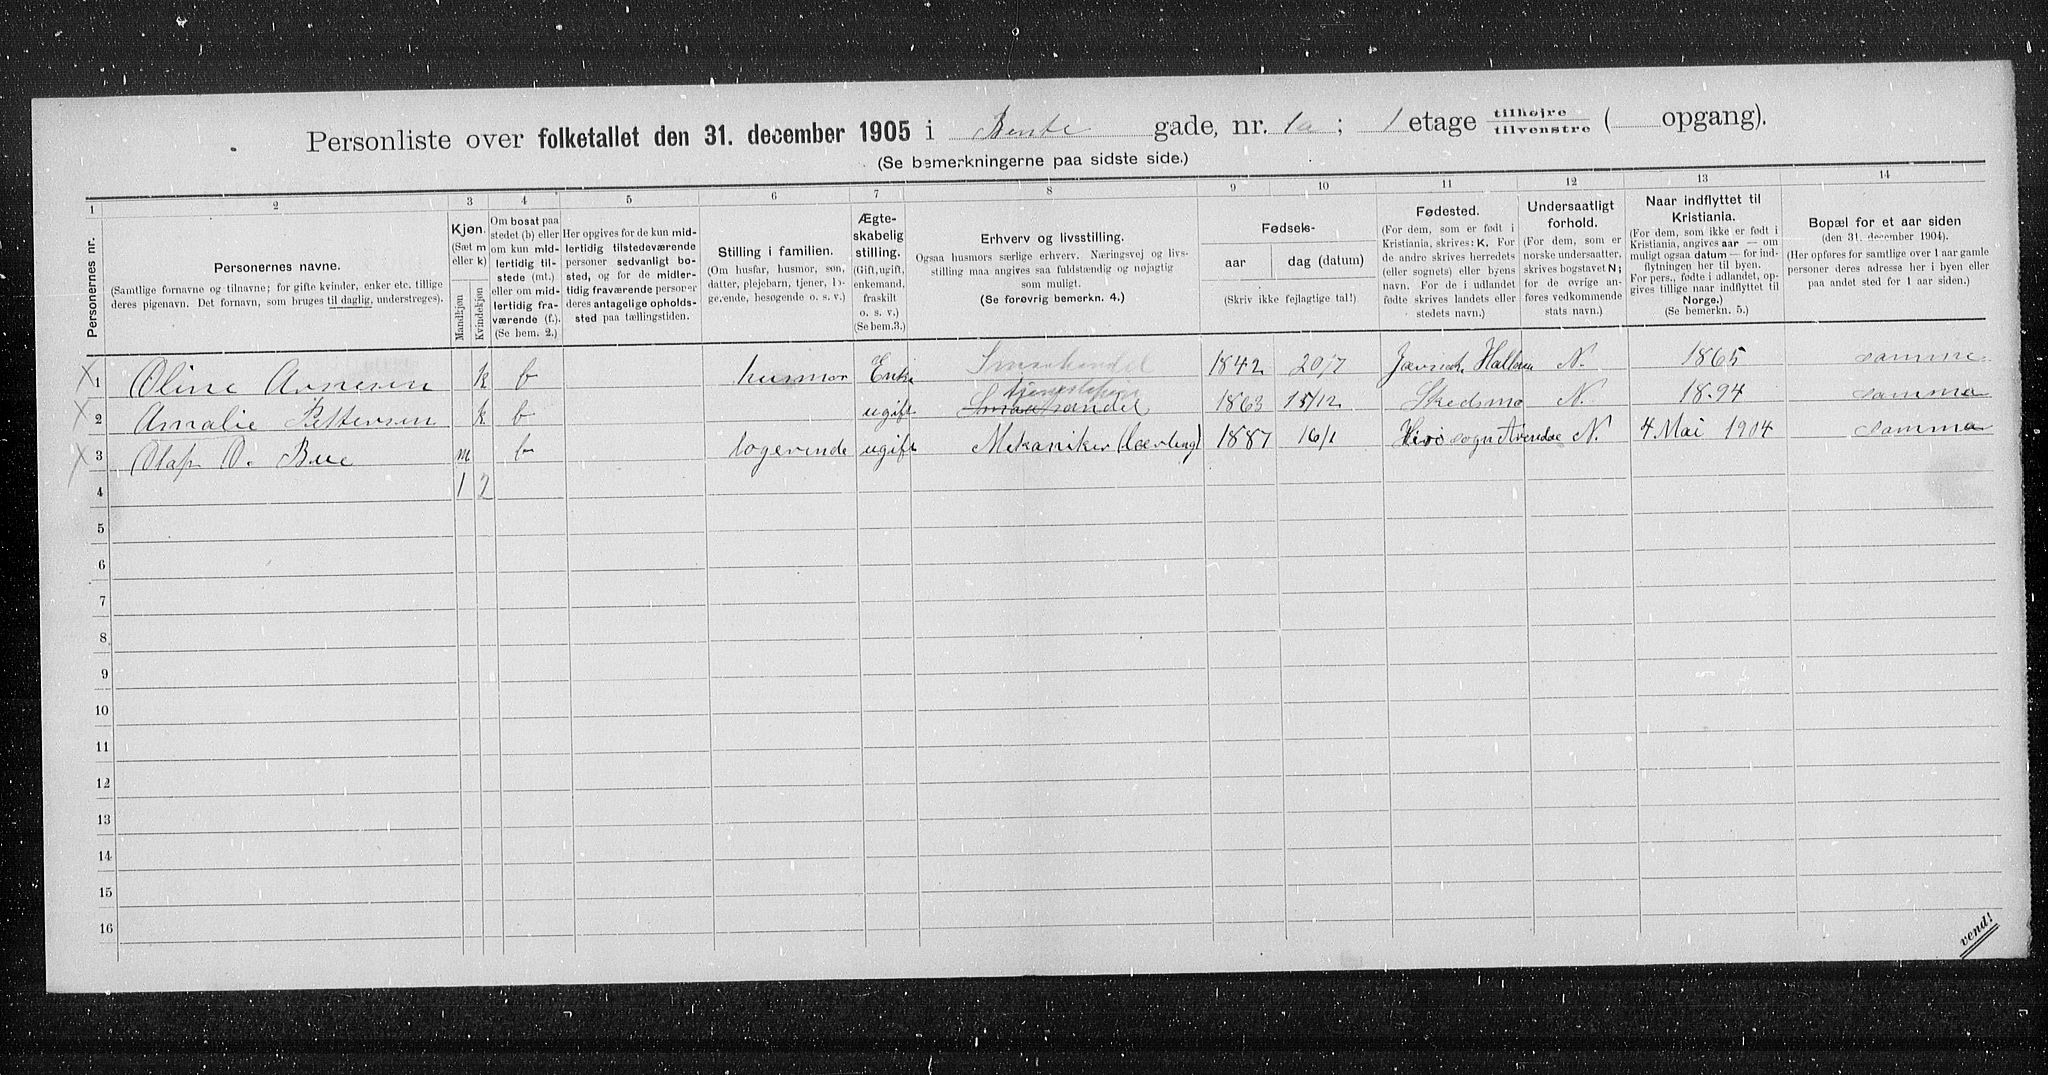 Personliste over folketallet den 31. december 1905 i Bente gade, nr. 1a ; 1 etage tilhøjre tilvenstre ( opgang).
(Se bemerkningerne paa sidste side.)
1 2 3 4 5 6 7 8 9 10 11 12 13 14
Personernes nr.
Personernes navne.
(Samtlige fornavne og tilnavne; for gifte kvinder, enker etc. tillige
deres pigenavn. Det fornavn, som bruges til daglig, understreges).
Kjøn.
(Sæt m
eller k)
Mandkjøn
Kvindekjøn
Om bosat paa
stedet (b) eller
om kun mid-
lertidig til-
stede (mt.)
eller om mid-
lertidig fra-
værende (f.).
(Se bem. 2.)
Her opgives for de kun mid-
lertidig tilstedeværende
personer sedvanlig bo-
sted, og for de midler-
tidig fraværende personer
deres antagelige opholds-
sted paa tællingstiden.
Stilling i familien.
(Om husfar, husmor, søn,
datter, plejebarn, tjener, lo-
gerende, besøgende o. s. v.)
Ægte-
skabelig
stilling.
(Gift, ugift,
enkemand,
fraskilt
o. s. v.)
(Se bem.3.)
Erhverv og livsstilling.
Ogsaa husmors særlige erhverv. Næringsvej og livs-
stilling maa angives saa fuldstændig og nøjagtig
som muligt.
(Se forøvrig bemerkn. 4.)
Fødsels-
aar
dag (datum)
(Skriv ikke fejlagtige tal!)
Fødested.
(For dem, som er født i
Kristiania, skrives: K. For
de andre skrives herredets
(eller sognets) eller byens
navn. For de i udlandet
fødte skrives landets eller
stedets navn.)
Undersaatligt
forhold.
(For dem, som er
norske undersaatter,
skrives bogstavet N;
for de øvrige an-
føres vedkommende
stats navn.)
Naar indflyttet til
Kristiania.
(For dem, som ikke er født i
Kristiania, angives aar — om
muligt ogsaa datum — for ind-
flytningen her til byen.
For pers., fødte i udlandet, op-
gives tillige naar indflyttet til
Norge.)
(Se bemerkn. 5.)
Bopæl for et aar siden
(den 31. december 1904).
(Her opføres for samtlige over 1 aar gamle
personer deres adresse her i byen eller
paa andet sted for 1 aar siden.)
1 Oline Arnesen k b husmor Enke Smaahandel 1842 20/7 N. 1865 samme
2 Amalie Pettersen k b ugift Smaahandel 1863 15/12 Skedsmo N. 1894 samma
3 Olaf O. Bue m b logerende ugift Mekaniker (Lærling) 1887 16/1 N. 4 Mai 1904 samma
4 1 2
5
6
7
8
9
10
11
12
13
14
15
16
vend!